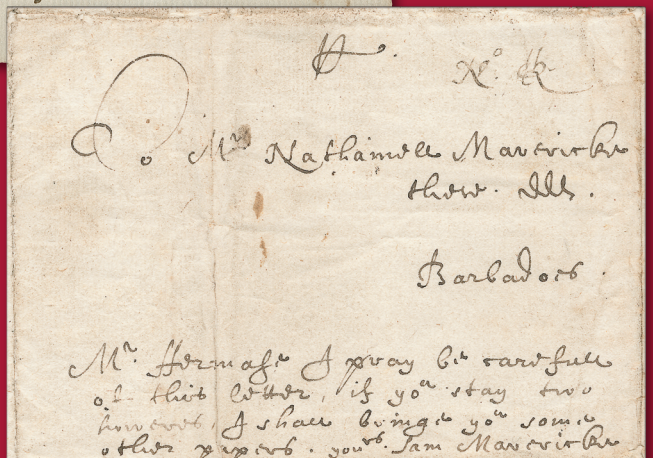 To Mr Nathaniell Mavericke
there. ddd.
Barbadoes.
Mr. Hermase I pray be carefull
of this letter, if you stay two
howeres, I shall bringe you some
other papers. yours. Sam Mavericke